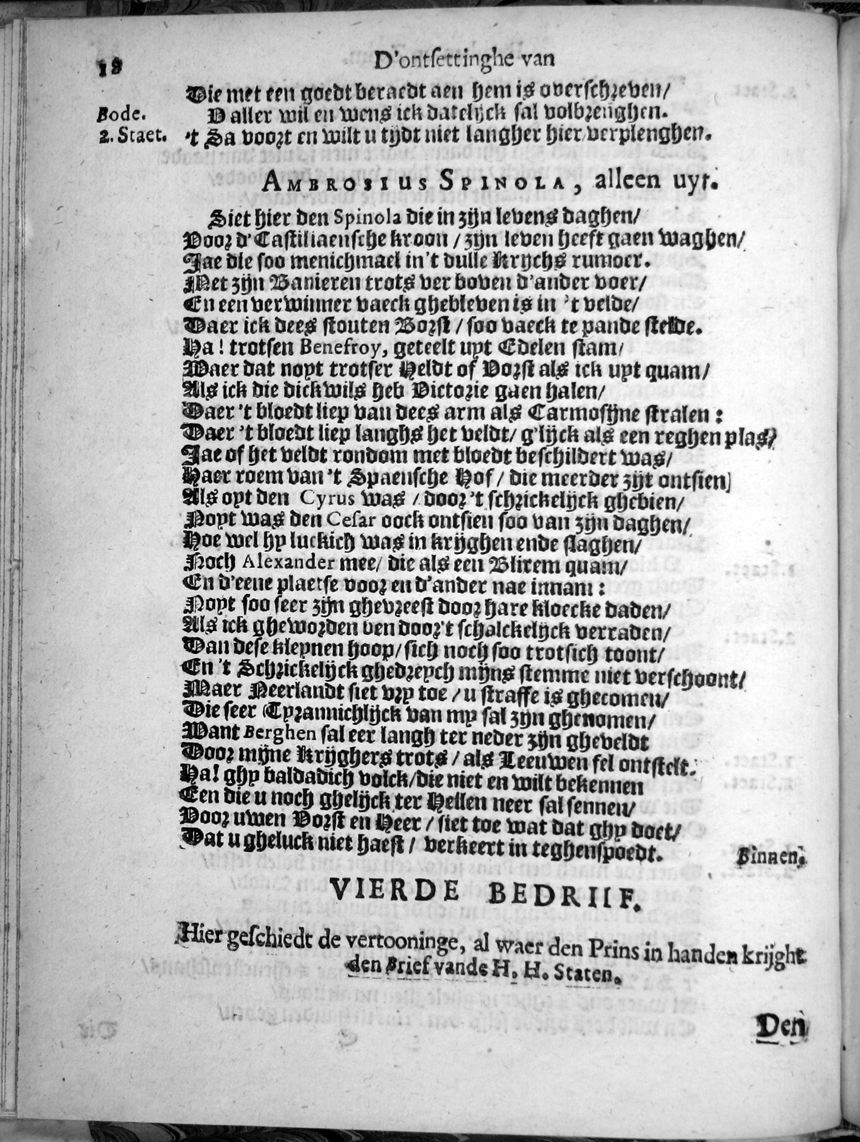 18 D'ontsettinghe van
Die met een goedt beraedt aen hem is overschreven/
Bode. D aller wil en wens ick datelijck sal volbrenghen.
2. Staet. 't Sa voort en wilt u tijdt niet langher hier verplenghen.
AMBROSIUS SPINOLA, alleen uyt.
Siet hier den Spinola die in zijn levens daghen/
Voor d'Castiliaensche kroon / zijn leven heeft gaen waghen/
Jae die soo menichmael in't dulle Krychs rumoer.
Met zijn Banieren trots ver boven d'ander voer/
En een verwinner vaeck ghebleven is in 't velde/
Daer ick dees stouten Borst / soo vaeck te pande stelde.
Ha! trotsen Benefroy, geteelt uyt Edelen stam/
Waer dat noyt trotser Heldt of Vorst als ick uyt quam/
Als ick die dickwils heb Victorie gaen halen/
Daer 't bloedt liep van dees arm als Carmosijne stralen:
Daer 't bloedt liep langhs het veldt/ g'lijck als een reghen plas/
Jae of het veldt rondom met bloedt beschildert was/
Haer roem van 't Spaensche Hof / die meerder zijt ontsien/
Als oyt den Cyrus was / door 't schrickelijck ghebien/
Noyt was den Cesar oock ontsien soo van zijn daghen/
Hoe wel hy luckich was in krijghen ende slaghen/
Noch Alexander mee/ die als een Blixem quam/
En d'eene plaetse voor en d'ander nae innam:
Noyt soo seer zijn ghevreest door hare kloecke daden/
Als ick gheworden ben door't schalckelijck verraden/
Van dese kleynen hoop/ sich noch soo trotsich toont/
En 't Schrickelijck ghedreych mijns stemme niet verschoont/
Maer Neerlandt siet vry toe / u straffe is ghecomen/
Die seer Tyrannichlijck van my sal zijn ghenomen/
Want Berghen sal eer langh ter neder zijn gheveldt
Door mijne Krijghers trots / als Leeuwen fel ontstelt.
Ha! ghy baldadich volck/die niet en wilt bekennen
Een die u noch ghelijck ter Hellen neer sal sennen/
Voor uwen Vorst en Heer / siet toe wat dat ghy doet/
Dat u gheluck niet haest / verkeert in teghenspoedt. Binnen.
VIERDE BEDRIIF.
Hier geschiedt de vertooninge, al waer den Prins in handen krijght
den Brief vande H. H. Staten.
Den